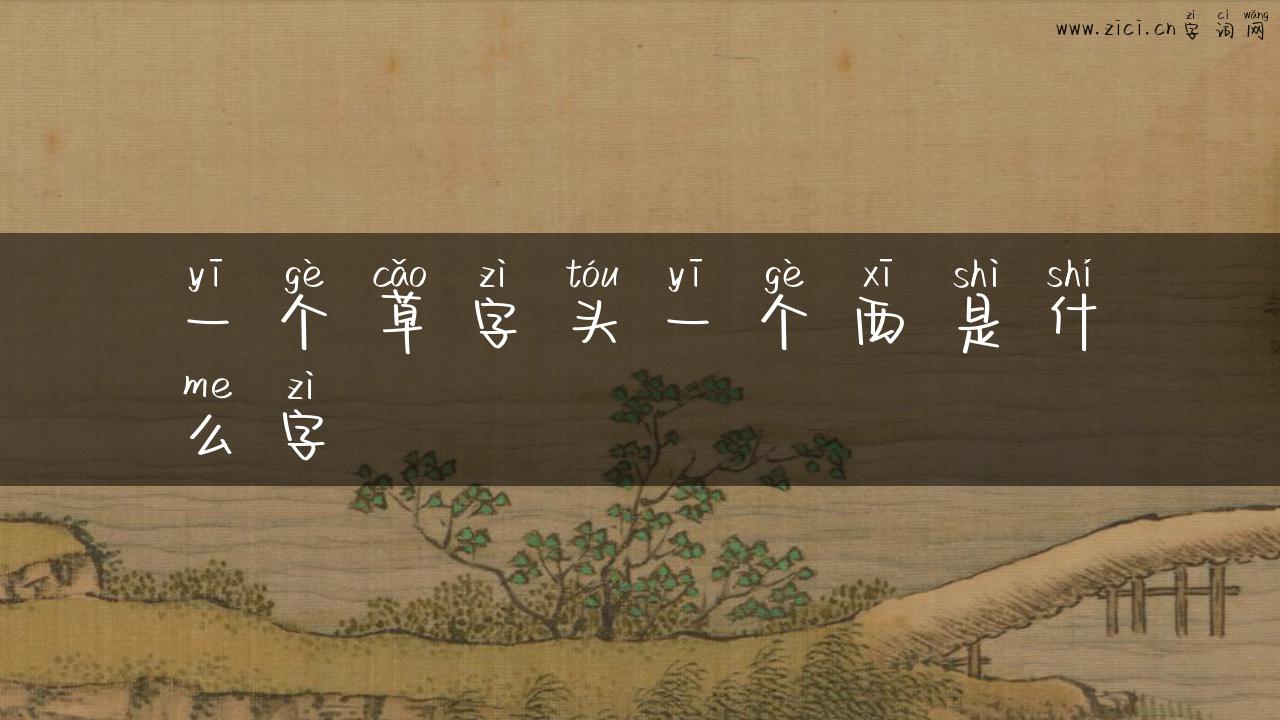 www.zici.cn zì cí wǎng
字词网
yī gè cǎo zì tóu yī gè xī shì shí
一个草字头一个西是什
me zì
么字